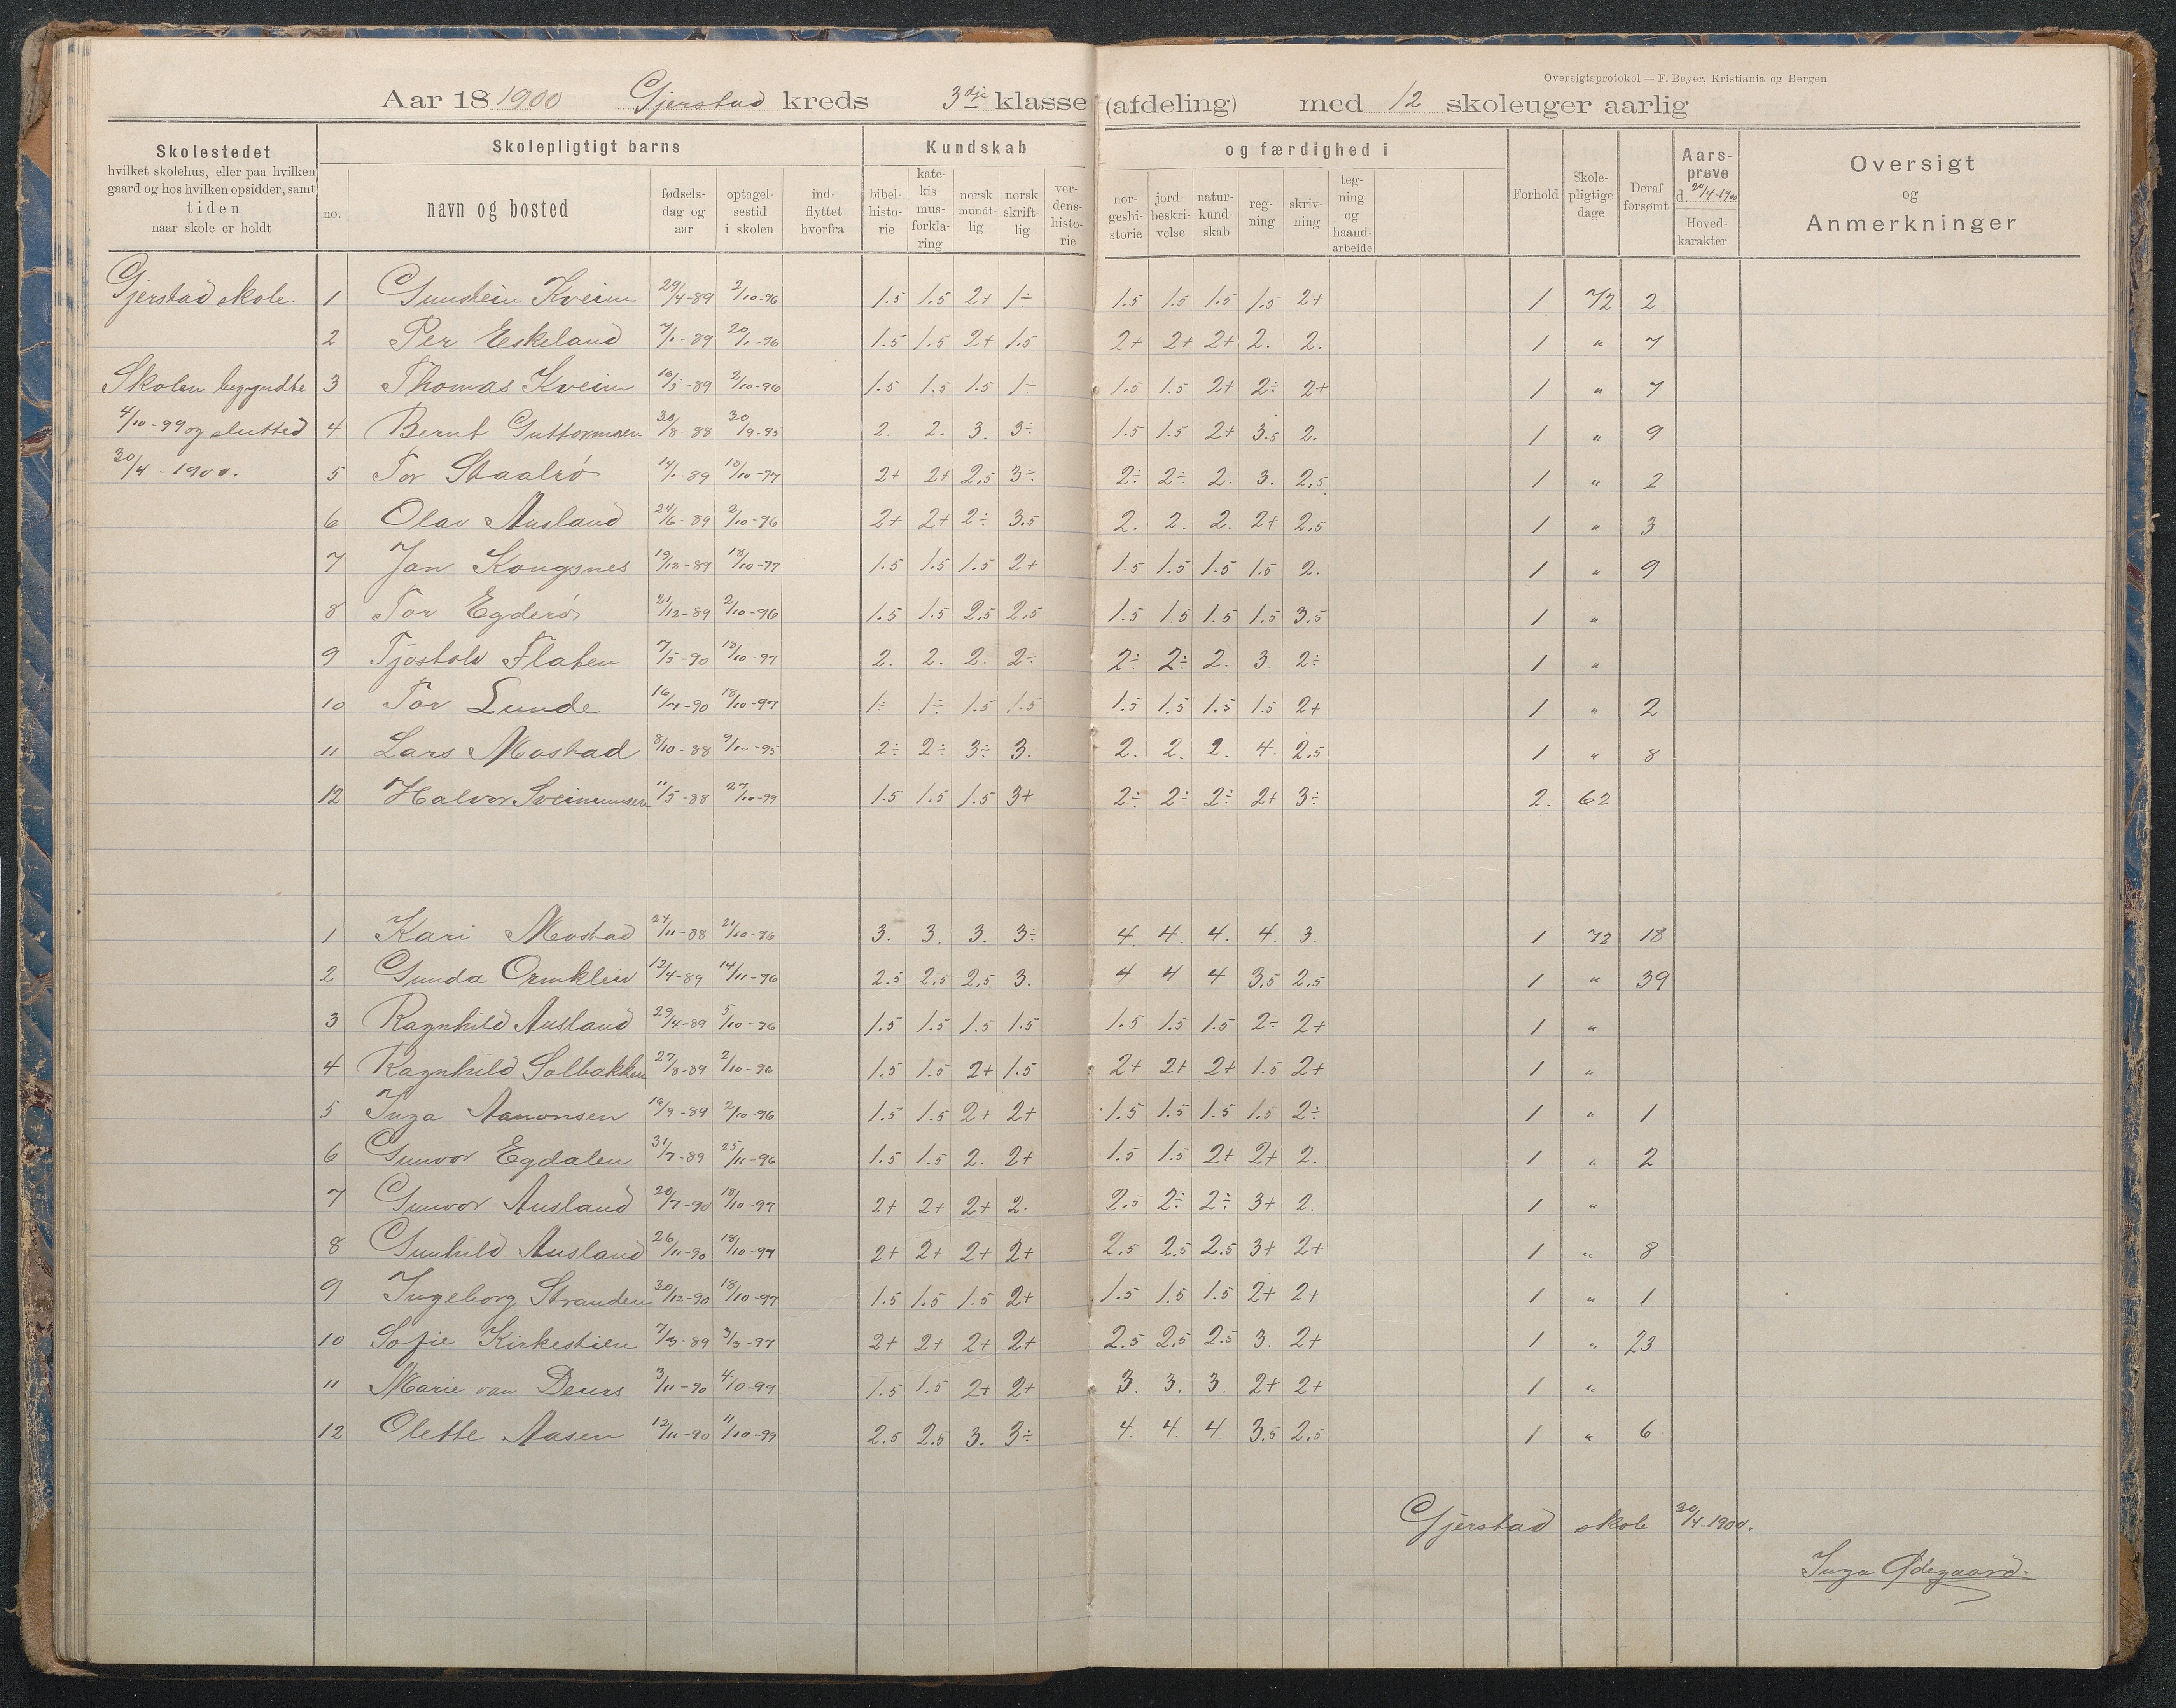 Oversigtsprotokol — F. Beyer, Kristiania og Bergen
Aar 18 1900 Gjerstad kreds 3dje klasse (afdeling) med 12 skoleuger aarlig
Skolestedet hvilket skolehus, eller paa hvilken gaard og hos hvilken opsidder, samt tiden naar skole er holdt
Skolepligtigt barns
no. navn og bosted fødsels-dag og aar optagel-sestid i skolen ind-flyttet hvorfra
Kundskab og færdighed i
bibel-histo-rie kate-kis-mus-forkla-ring norsk mundt-lig norsk skrift-lig ver-dens-histo-rie nor-geshi-storie jord-beskri-velse natur-kund-skab reg-ning skriv-ning teg-ning og haand-arbeide
Forhold Skole-pligtige dage Deraf forsømt Aars-prøve d. 20/4-1900 Hoved-karakter
Oversigt og Anmerkninger
Gjerstad skole. 1 Gunstein Kveim 29/4-89 2/10-96 1.5 1.5 2+ 1÷ 1.5 1.5 1.5 1.5 2+ 1 72 2
2 Per Eskeland 7/1-89 20/1-96 1.5 1.5 2+ 1.5 2+ 2+ 2+ 2. 2. 1 " 7
Skolen begyndte 3 Thomas Kveim 16/5-89 2/10-96 1.5 1.5 1.5 1÷ 1.5 1.5 2+ 2÷ 2+ 1 " 7
4/10-99 og slutted 4 Bernt Guttormsen 30/8-88 30/9-95 2. 2. 3. 3÷ 1.5 1.5 2+ 3.5 2. 1 " 9
30/4-1900. 5 Tor Staalrø 14/1-89 18/10-97 2+ 2+ 2.5 3÷ 2÷ 2÷ 2. 3. 2.5 1 " 2
6 Olav Ausland 24/6-89 2/10-96 2+ 2+ 2÷ 3.5 2. 2. 2. 2+ 2.5 1 " 3
7 Jan Kongsnes 19/12-89 18/10-97 1.5 1.5 1.5 2+ 1.5 1.5 1.5 1.5 2. 1 " 9
8 Tor Egderø 21/12-89 2/10-96 1.5 1.5 2.5 2.5 1.5 1.5 1.5 1.5 3.5 1 "
9 Tjostolv Flaten 7/5-90 18/10-97 2. 2. 2. 2÷ 2÷ 2÷ 2. 3. 2÷ 1 "
10 Tor Lunde 16/7-90 18/10-97 1÷ 1÷ 1.5 1.5 1.5 1.5 1.5 1.5 2+ 1 " 2
11 Lars Mostad 8/10-88 9/10-95 2÷ 2÷ 3÷ 3. 2. 2. 2. 4. 2.5 1 " 8
12 Halvor Sveinunsen 11/5-88 27/10-99 1.5 1.5 1.5 3+ 2÷ 2÷ 2÷ 2+ 3÷ 2. 62
1 Kari Mostad 24/11-88 21/10-96 3. 3. 3. 3÷ 4. 4. 4. 4. 3. 1 72 18
2 Gunda Ormkleiv 12/4-89 14/11-96 2.5 2.5 2.5 3. 4 4 4 3.5 2.5 1 " 39
3 Ragnhild Ausland 29/4-89 5/10-96 1.5 1.5 1.5 1.5 1.5 1.5 1.5 2÷ 2+ 1 "
4 Ragnhild Solbakken 27/8-89 2/10-96 1.5 1.5 2+ 1.5 2+ 2+ 2+ 1.5 2+ 1 "
5 Inga Aanonsen 19/9-89 2/10-96 1.5 1.5 2+ 2+ 1.5 1.5 1.5 1.5 2÷ 1 " 1
6 Gunvor Egdalen 31/7-89 25/11-96 1.5 1.5 2. 2+ 1.5 1.5 2+ 2+ 2. 1 " 2
7 Gunvor Ausland 20/7-90 18/10-97 2+ 2+ 2+ 2. 2.5 2÷ 2÷ 3+ 2. 1 "
8 Gunhild Ausland 26/11-90 18/10-97 2+ 2+ 2+ 2+ 2.5 2.5 2.5 3+ 2+ 1 " 8
9 Ingeborg Stranden 30/12-90 18/10-97 1.5 1.5 1.5 2+ 1.5 1.5 1.5 2+ 2+ 1 " 1
10 Sofie Kirkestien 7/3-89 3/3-97 2+ 2+ 2+ 2+ 2.5 2.5 2.5 3. 2+ 1 " 23
11 Marie van Deurs 3/11-90 4/10-99 1.5 1.5 2+ 2+ 3. 3. 3. 2+ 2+ 1 "
12 Olette Aasen 12/11-90 11/10-99 2.5 2.5 3. 3÷ 4. 4. 4 3.5 2.5 1 " 6
Gjerstad skole 30/4-1900.
Inga Ødegaard.